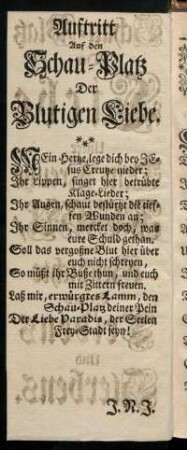 Auftritt
Auf den
Schau-Platz
Der
Blutigen Liebe.
***
MEin Hertze, lege dich bey JE-
sus Creutze nieder;
Ihr Lippen, singet hier betrübte
Klage-Lieder;
Ihr Augen, schaut bestürtzt die tief-
fen Wunden an;
Ihr Sinnen, mercket doch, was
eure Schuld gethan.
Soll das vergoßne Blut hier über
euch nicht schreyen,
So müßt ihr Buße thun, und euch
mit Zittern freuen.
Laß mir, erwürgtes Lamm, den
Schau-Platz deiner Pein
Der Liebe Paradis, der Seelen
Frey-Stadt seyn!
J. N. J.